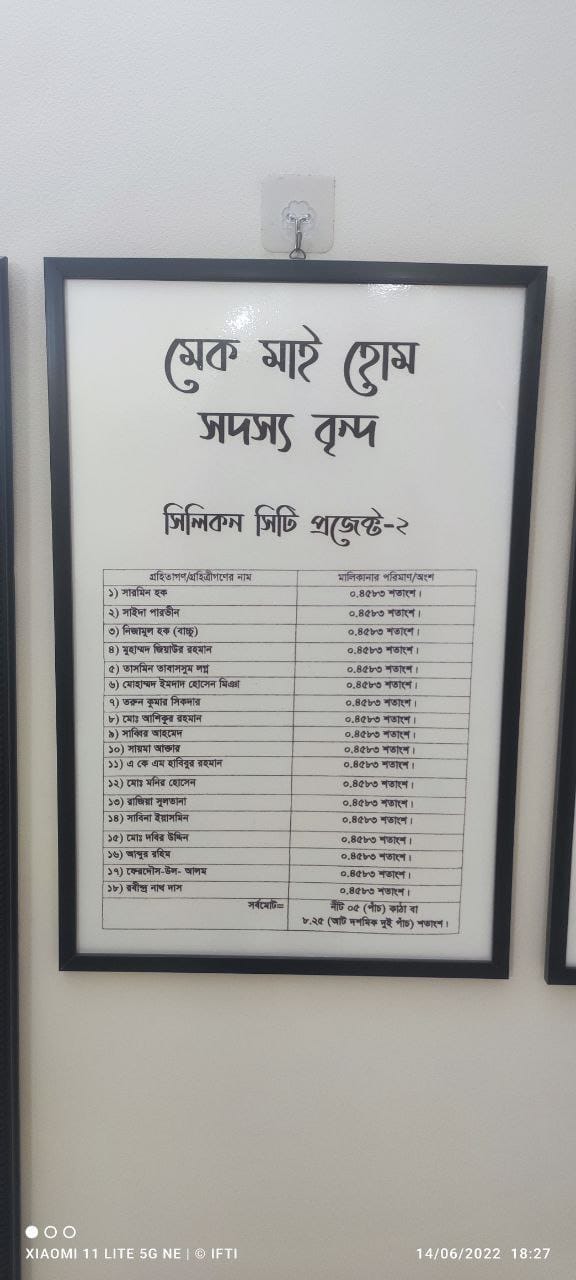 মেক মাই হোম
সদস্য বৃন্দ
সিলিকন সিটি প্রজেক্ট-২
গ্রহিতাগণ/গ্রহিত্রীগণের নাম মালিকানার পরিমাণ/অংশ
১) সারমিন হক ০.৪৫৮৩ শতাংশ।
২) সাইদা পারভীন ০.৪৫৮৩ শতাংশ।
৩) নিজামুল হক (বাচ্চু) ০.৪৫৮৩ শতাংশ।
৪) মুহাম্মদ জিয়াউর রহমান ০.৪৫৮৩ শতাংশ।
৫) তাসমিন তাবাসসুম লগ্ন ০.৪৫৮৩ শতাংশ।
৬) মোহাম্মদ ইমদাদ হোসেন মিঞা ০.৪৫৮৩ শতাংশ।
৭) তরুন কুমার সিকদার ০.৪৫৮৩ শতাংশ।
৮) মোঃ আশিকুর রহমান ০.৪৫৮৩ শতাংশ।
৯) সাব্বির আহমেদ ০.৪৫৮৩ শতাংশ।
১০) সায়মা আক্তার ০.৪৫৮৩ শতাংশ।
১১) এ কে এম হাবিবুর রহমান ০.৪৫৮৩ শতাংশ।
১২) মোঃ মনির হোসেন ০.৪৫৮৩ শতাংশ।
১৩) রাজিয়া সুলতানা ০.৪৫৮৩ শতাংশ।
১৪) সাবিনা ইয়াসমিন ০.৪৫৮৩ শতাংশ।
১৫) মোঃ দবির উদ্দিন ০.৪৫৮৩ শতাংশ।
১৬) আব্দুর রহিম ০.৪৫৮৩ শতাংশ।
১৭) ফেরদৌস-উল- আলম ০.৪৫৮৩ শতাংশ।
১৮) রবীন্দ্র নাথ দাস ০.৪৫৮৩ শতাংশ।
সর্বমোট= নীট ০৫ (পাঁচ) কাঠা বা
৮.২৫ (আট দশমিক দুই পাঁচ) শতাংশ।
XIAOMI 11 LITE 5G NE | © IFTI 14/06/2022 18:27